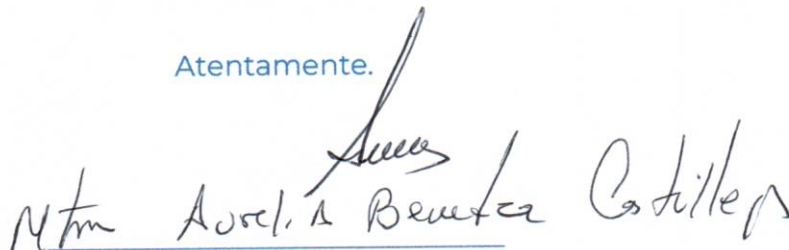 Atentamente.
Mtra Aurelia Castillejo